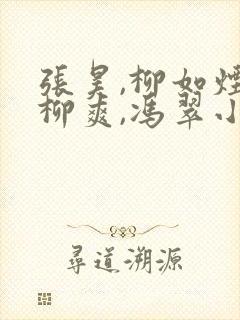 張昊,柳如煙
柳爽,馮翠小
尋道溯源